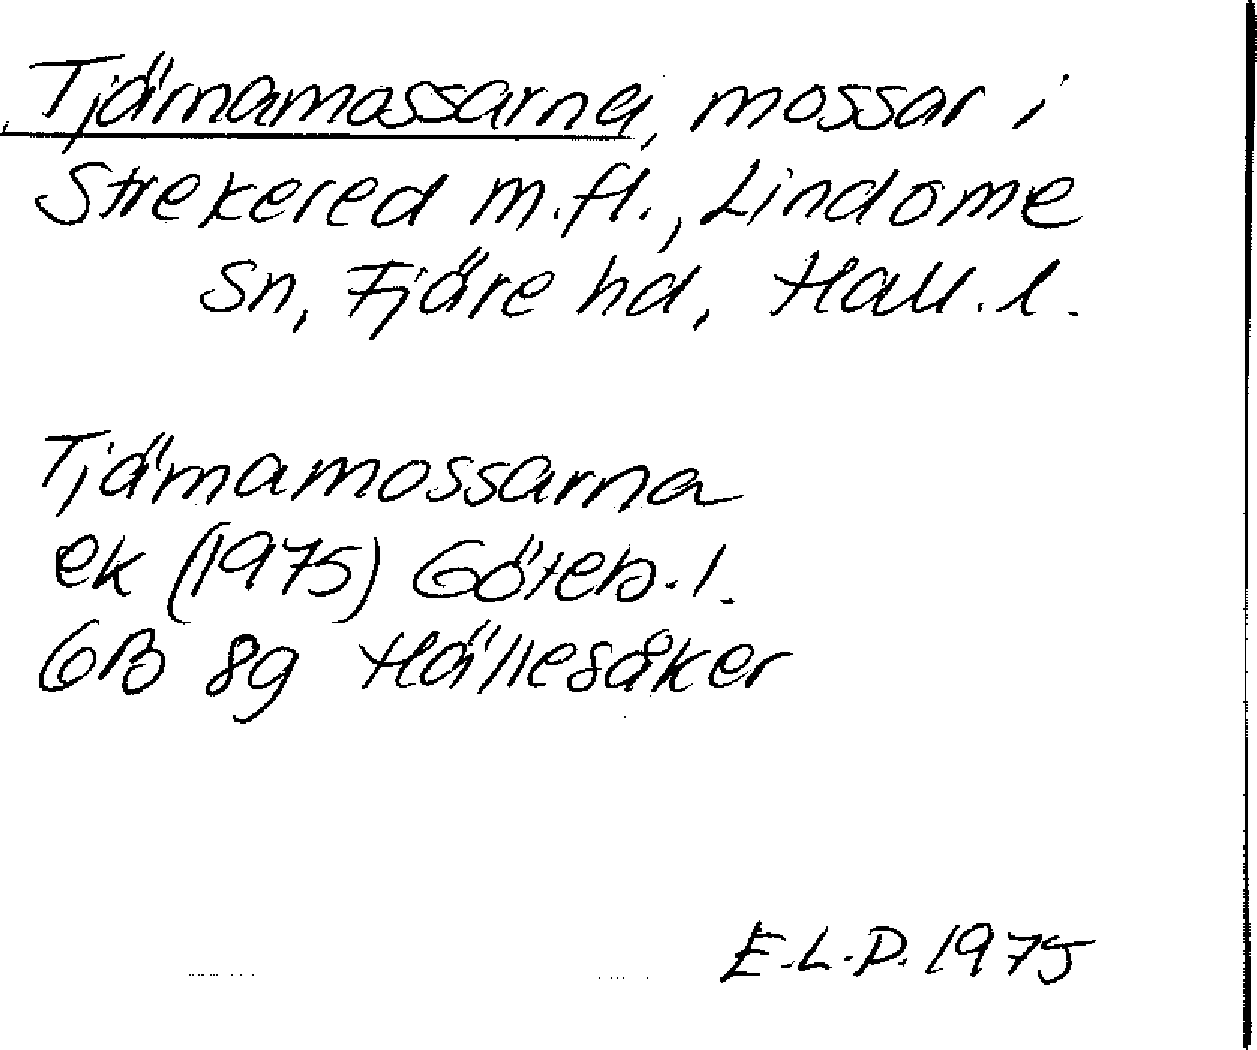 Tjärnamossarna, mossar i
Strekered m.fl., Lindome
sn, Fjäre hd, Hall. l.
Tjärnamossarna
ek (1975) Göteb. l.
GB 8g Hällesåker
E.L.P. 1975